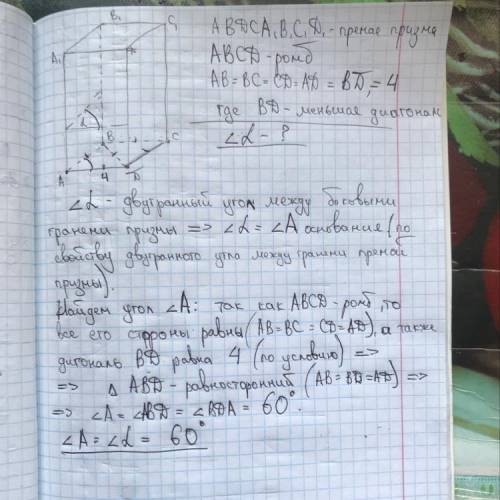 B₁ C₁
A₁
α
B
C
A 4 D
ABDCA₁B₁C₁D₁ - прямая призма
ABCD - ромб
AB = BC = CD = AD = BD, = 4
где BD - меньшая диагонал
∠α - ?
∠α - двугранный угол между боковыми
гранеми призмы => ∠α = ∠A основание (по
свойству двугранного угла между гранями прямой
призмы).
Найдем угол ∠A: так как ABCD - ромб, то
все его стороны равны (AB = BC = CD = AD), а также
дигональ BD равна 4 (по условию) =>
=> △ ABD - равносторонний (AB = BD = AD) =>
=> ∠A = ∠ABD = ∠BDA = 60°.
∠A = ∠α = 60°